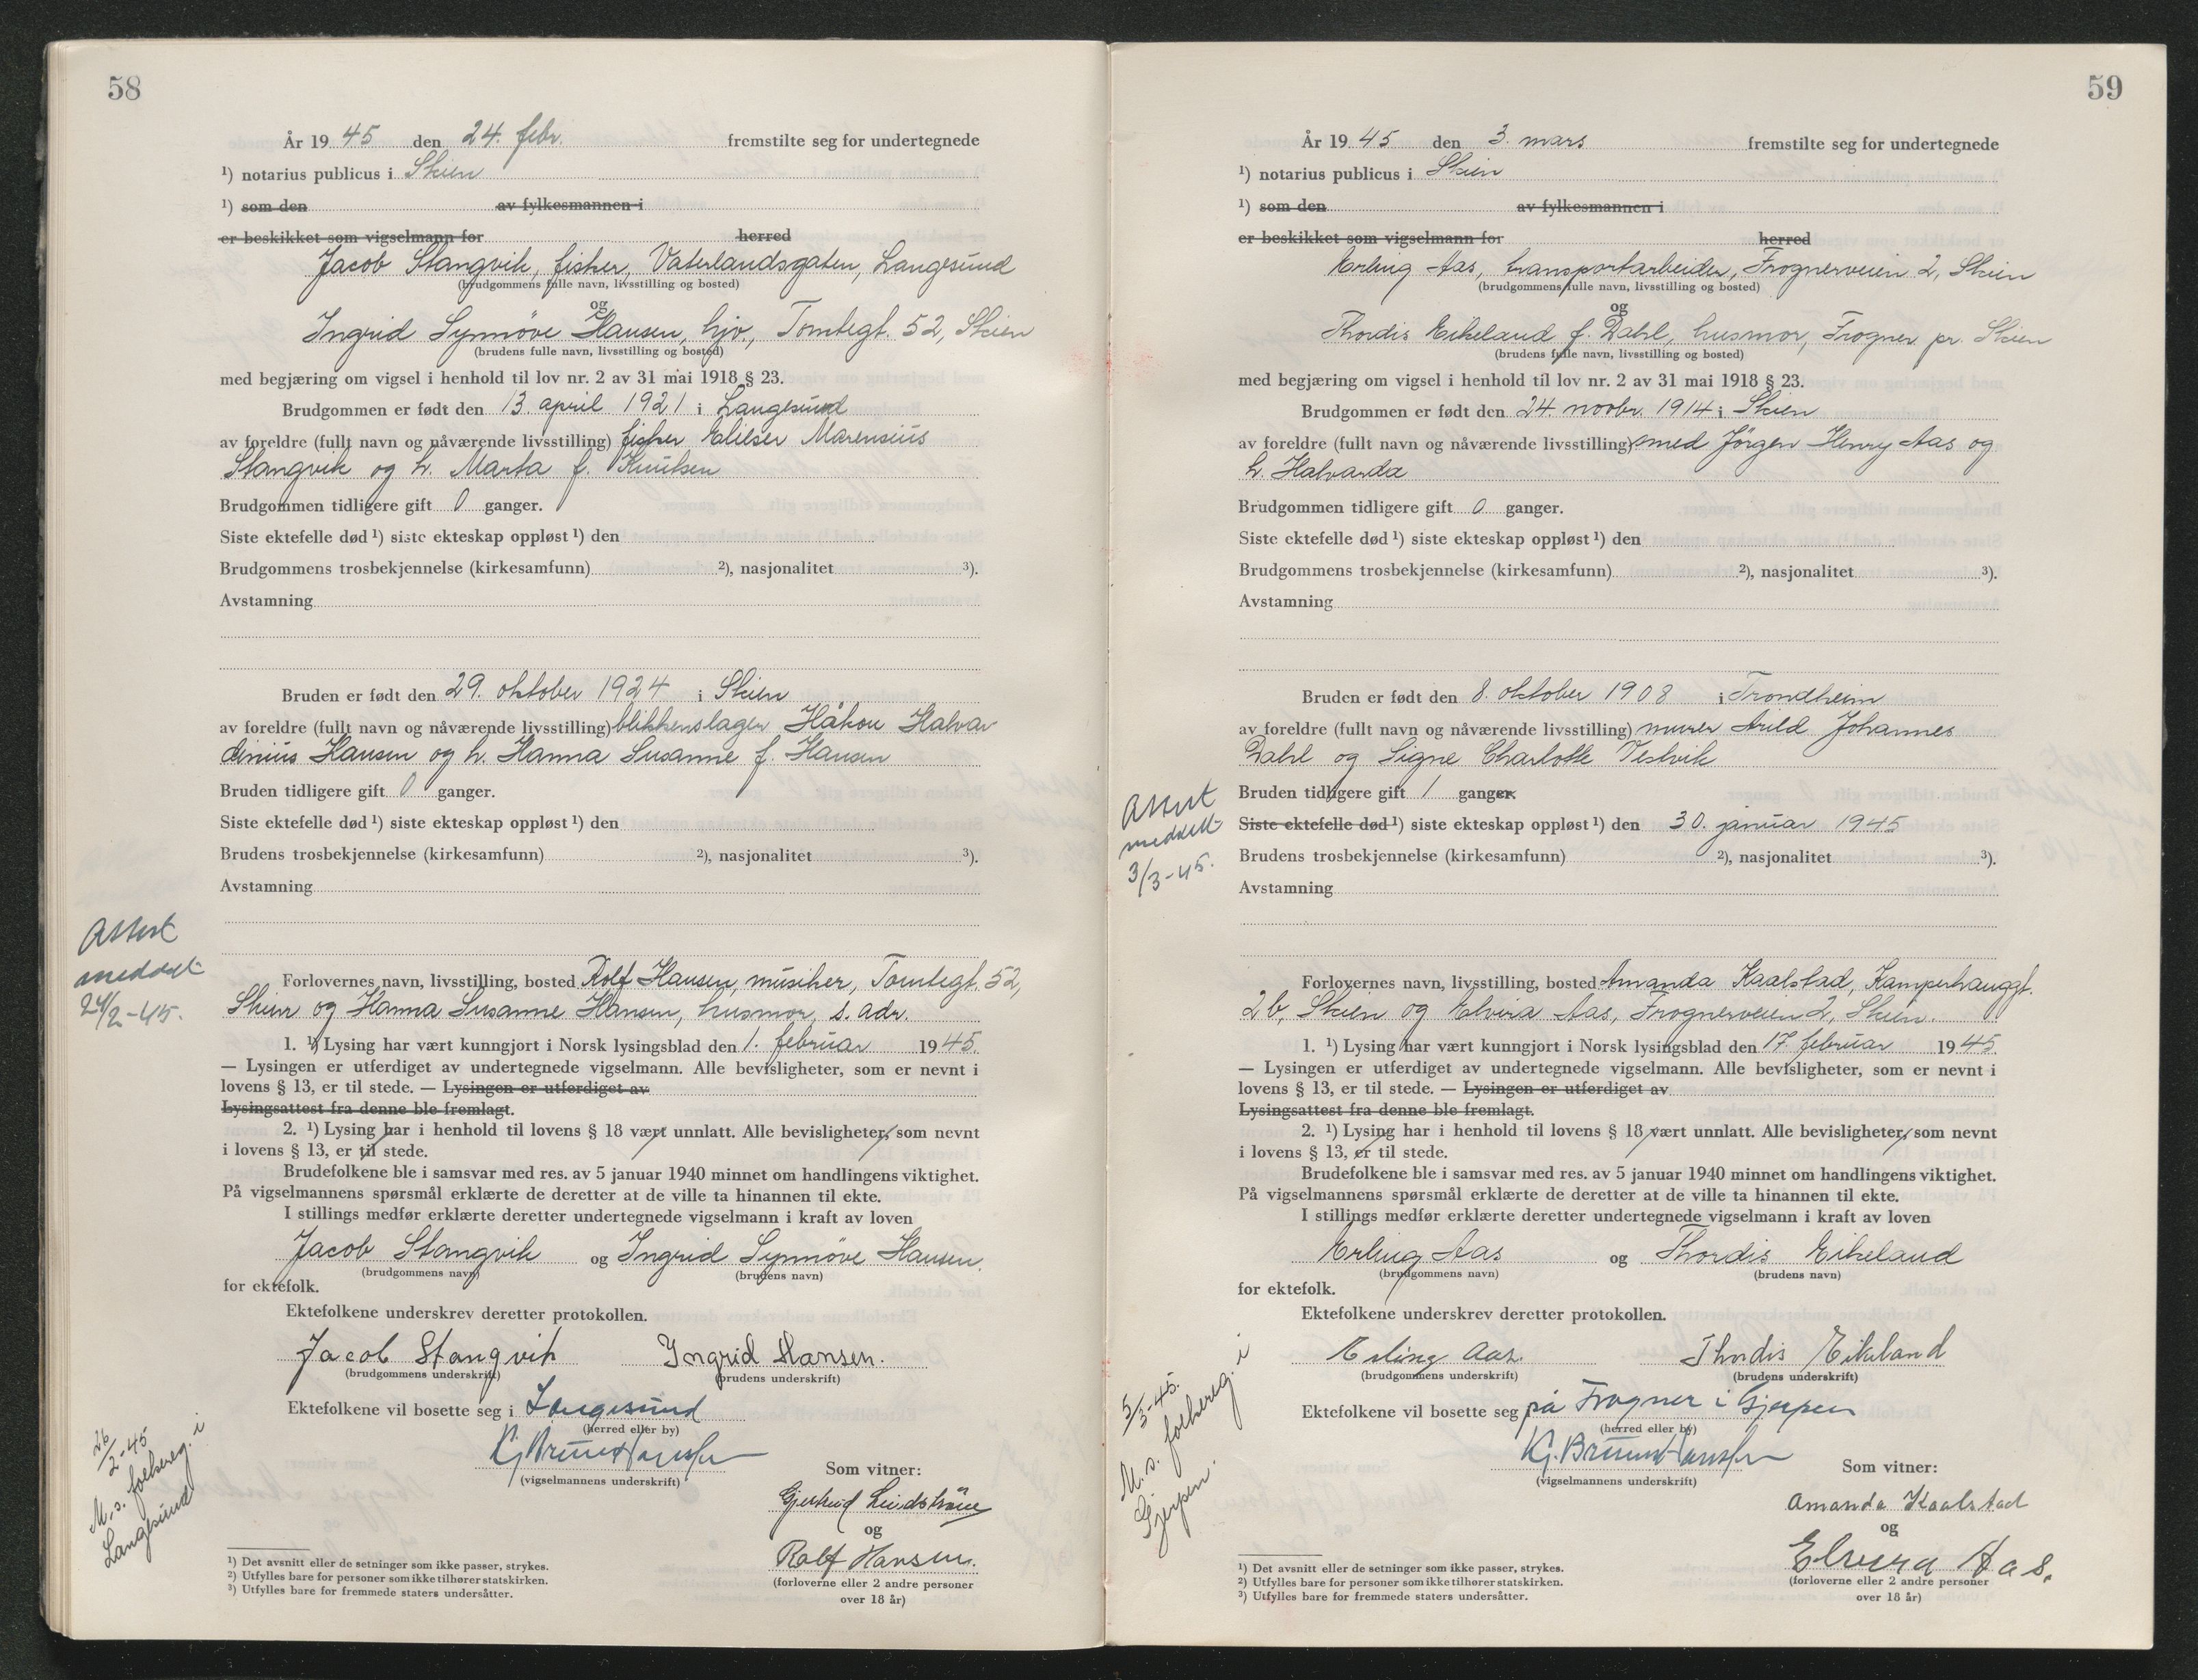 58
År 1945 den 24. febr. fremstilte seg for undertegnede
¹) notarius publicus i Skien
¹) som den av fylkesmannen i
er beskikket som vigselmann for herred
Jacob Stangvik, fisker, Vaterlandsgaten, Langesund
(brudgommens fulle navn, livsstilling og bosted)
og
Ingrid Synnöve Hansen, hjv., Tomtegt. 52, Skien
(brudens fulle navn, livsstilling og bosted)
med begjæring om vigsel i henhold til lov nr. 2 av 31 mai 1918 § 23.
Brudgommen er født den 13. april 1921 i Langesund
av foreldre (fullt navn og nåværende livsstilling) fisker Elieser Marensius
Stangvik og h. Marta f. Knutsen
Brudgommen tidligere gift 0 ganger.
Siste ektefelle død ¹) siste ekteskap oppløst ¹) den
Brudgommens trosbekjennelse (kirkesamfunn) ²), nasjonalitet ³).
Avstamning
Bruden er født den 29. oktober 1924 i Skien
av foreldre (fullt navn og nåværende livsstilling) blikkenslager Håkon Halvar
dinius Hansen og h. Hanna Susanne f. Hansen
Bruden tidligere gift 0 ganger.
Siste ektefelle død ¹) siste ekteskap oppløst ¹) den
Brudens trosbekjennelse (kirkesamfunn) ²), nasjonalitet ³).
Avstamning
Attest
meddelt
24/2-45.
Forlovernes navn, livsstilling, bosted Rolf Hansen, musiker, Tomtegt. 52,
Skien og Hanna Susanne Hansen, husmor, s. adr.
1. ¹) Lysing har vært kunngjort i Norsk lysingsblad den 1. februar 1945.
— Lysingen er utferdiget av undertegnede vigselmann. Alle bevisligheter, som er nevnt i
lovens § 13, er til stede. — Lysingen er utferdiget av
Lysingsattest fra denne ble fremlagt.
2. ¹) Lysing har i henhold til lovens § 18 vært unnlatt. Alle bevisligheter, som nevnt
i lovens § 13, er til stede.
Brudefolkene ble i samsvar med res. av 5 januar 1940 minnet om handlingens viktighet.
På vigselmannens spørsmål erklærte de deretter at de ville ta hinannen til ekte.
I stillings medfør erklærte deretter undertegnede vigselmann i kraft av loven
Jacob Stangvik og Ingrid Synnöve Hansen.
(brudgommens navn) (brudens navn)
for ektefolk.
Ektefolkene underskrev deretter protokollen.
Jacob Stangvik Ingrid Hansen.
(brudgommens underskrift) (brudens underskrift)
Ektefolkene vil bosette seg i Langesund
(herred eller by)
(vigselmannens underskrift)
26/2-45
M. s. folkereg. i
Langesund
Som vitner:
Gjertrud Lindström
og
Rolf Hansen.
(forloverne eller 2 andre personer
over 18 år)
¹) Det avsnitt eller de setninger som ikke passer, strykes.
²) Utfylles bare for personer som ikke tilhører statskirken.
³) Utfylles bare for fremmede staters undersåtter.
59
År 1945 den 3. mars fremstilte seg for undertegnede
¹) notarius publicus i Skien
¹) som den av fylkesmannen i
er beskikket som vigselmann for herred
Erling Aas, transportarbeider, Frognerveien 2, Skien
(brudgommens fulle navn, livsstilling og bosted)
og
Thordis Eikeland f. Dahl, husmor, Frogner pr. Skien
(brudens fulle navn, livsstilling og bosted)
med begjæring om vigsel i henhold til lov nr. 2 av 31 mai 1918 § 23.
Brudgommen er født den 24. novbr. 1914 i Skien
av foreldre (fullt navn og nåværende livsstilling) smed Jörgen Henry Aas og
h. Halvarda
Brudgommen tidligere gift 0 ganger.
Siste ektefelle død ¹) siste ekteskap oppløst ¹) den
Brudgommens trosbekjennelse (kirkesamfunn) ²), nasjonalitet ³).
Avstamning
Bruden er født den 8. oktober 1908 i Trondheim
av foreldre (fullt navn og nåværende livsstilling) murer Arild Johannes
Dahl og Signe Charlotte Vestvik
Bruden tidligere gift 1 ganger.
Siste ektefelle død ¹) siste ekteskap oppløst ¹) den 30. januar 1945
Brudens trosbekjennelse (kirkesamfunn) ²), nasjonalitet ³).
Avstamning
Attest
meddelt
3/3-45.
Forlovernes navn, livsstilling, bosted Amanda Kaalstad, Kamperhauggt.
2b, Skien og Elvira Aas, Frognerveien 2, Skien.
1. ¹) Lysing har vært kunngjort i Norsk lysingsblad den 17. februar 1945
— Lysingen er utferdiget av undertegnede vigselmann. Alle bevisligheter, som er nevnt i
lovens § 13, er til stede. — Lysingen er utferdiget av
Lysingsattest fra denne ble fremlagt.
2. ¹) Lysing har i henhold til lovens § 18 vært unnlatt. Alle bevisligheter, som nevnt
i lovens § 13, er til stede.
Brudefolkene ble i samsvar med res. av 5 januar 1940 minnet om handlingens viktighet.
På vigselmannens spørsmål erklærte de deretter at de ville ta hinannen til ekte.
I stillings medfør erklærte deretter undertegnede vigselmann i kraft av loven
Erling Aas og Thordis Eikeland
(brudgommens navn) (brudens navn)
for ektefolk.
Ektefolkene underskrev deretter protokollen.
Erling Aas. Thordis Eikeland
(brudgommens underskrift) (brudens underskrift)
Ektefolkene vil bosette seg på Frogner i Gjerpen
(herred eller by)
(vigselmannens underskrift)
5/3-45.
M. s. folkereg. i
Gjerpen.
Som vitner:
Amanda Kaalstad
og
Elvira Aas.
(forloverne eller 2 andre personer
over 18 år)
¹) Det avsnitt eller de setninger som ikke passer, strykes.
²) Utfylles bare for personer som ikke tilhører statskirken.
³) Utfylles bare for fremmede staters undersåtter.